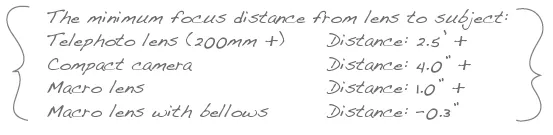 The minimum focus distance from lens to subject:
Telephoto lens (200mm +) Distance: 2.5' +
Compact camera Distance: 4.0" +
Macro lens Distance: 1.0" +
Macro lens with bellows Distance: -0.3"